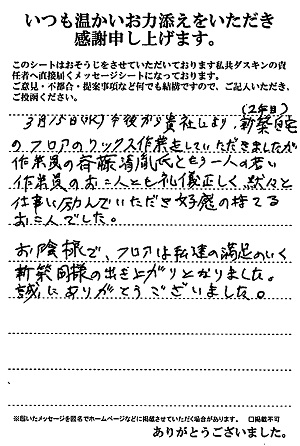 いつも温かいお力添えをいただき
感謝申し上げます。
このシートはおそうじをさせていただいております私共ダスキンの責
任者へ直接届くメッセージシートになっております。
ご意見・不都合・提案事項など何でも結構ですので、ご記入いただき、
ご投函ください。
(2年目)
3月15日(水)午後から貴社により、新築自宅
のフロアのワックス作業をしていただきましたが
作業員の斉藤清胤氏ともう一人の若い
作業員のお二人とも礼儀正しく黙々と
仕事に励んでいただき好感の持てる
お二人でした。
お陰様で、フロアは私達の満足のいく
新築同様の出き上がりとなりました。
誠にありがとうございました。
※届いたメッセージを匿名でホームページなどに掲載させていただく場合があります。 □掲載不可
ありがとうございました。